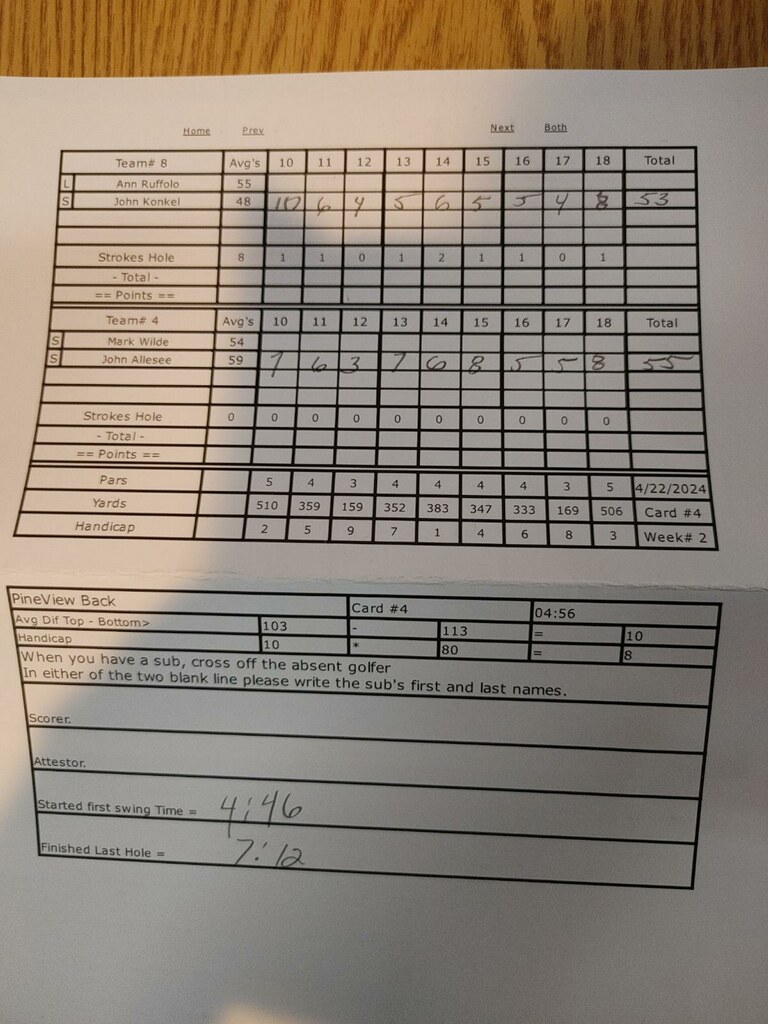 Home Prev Next Both
Team# 8 Avg's 10 11 12 13 14 15 16 17 18 Total
L Ann Ruffolo 55
S John Konkel 48 10 6 4 5 6 5 5 4 8 53
Strokes Hole 8 1 1 0 1 2 1 1 0 1
- Total -
== Points ==
Team# 4 Avg's 10 11 12 13 14 15 16 17 18 Total
S Mark Wilde 54
S John Allesee 59 7 6 3 7 6 8 5 5 8 55
Strokes Hole 0 0 0 0 0 0 0 0 0 0
- Total -
== Points ==
Pars 5 4 3 4 4 4 4 3 5 4/22/2024
Yards 510 359 159 352 383 347 333 169 506 Card #4
Handicap 2 5 9 7 1 4 6 8 3 Week# 2
PineView Back Card #4 04:56
Avg Dif Top - Bottom> 103 - 113 = 10
Handicap 10 * 80 = 8
When you have a sub, cross off the absent golfer
In either of the two blank line please write the sub's first and last names.
Scorer.
Attestor.
Started first swing Time = 4:46
Finished Last Hole = 7:12